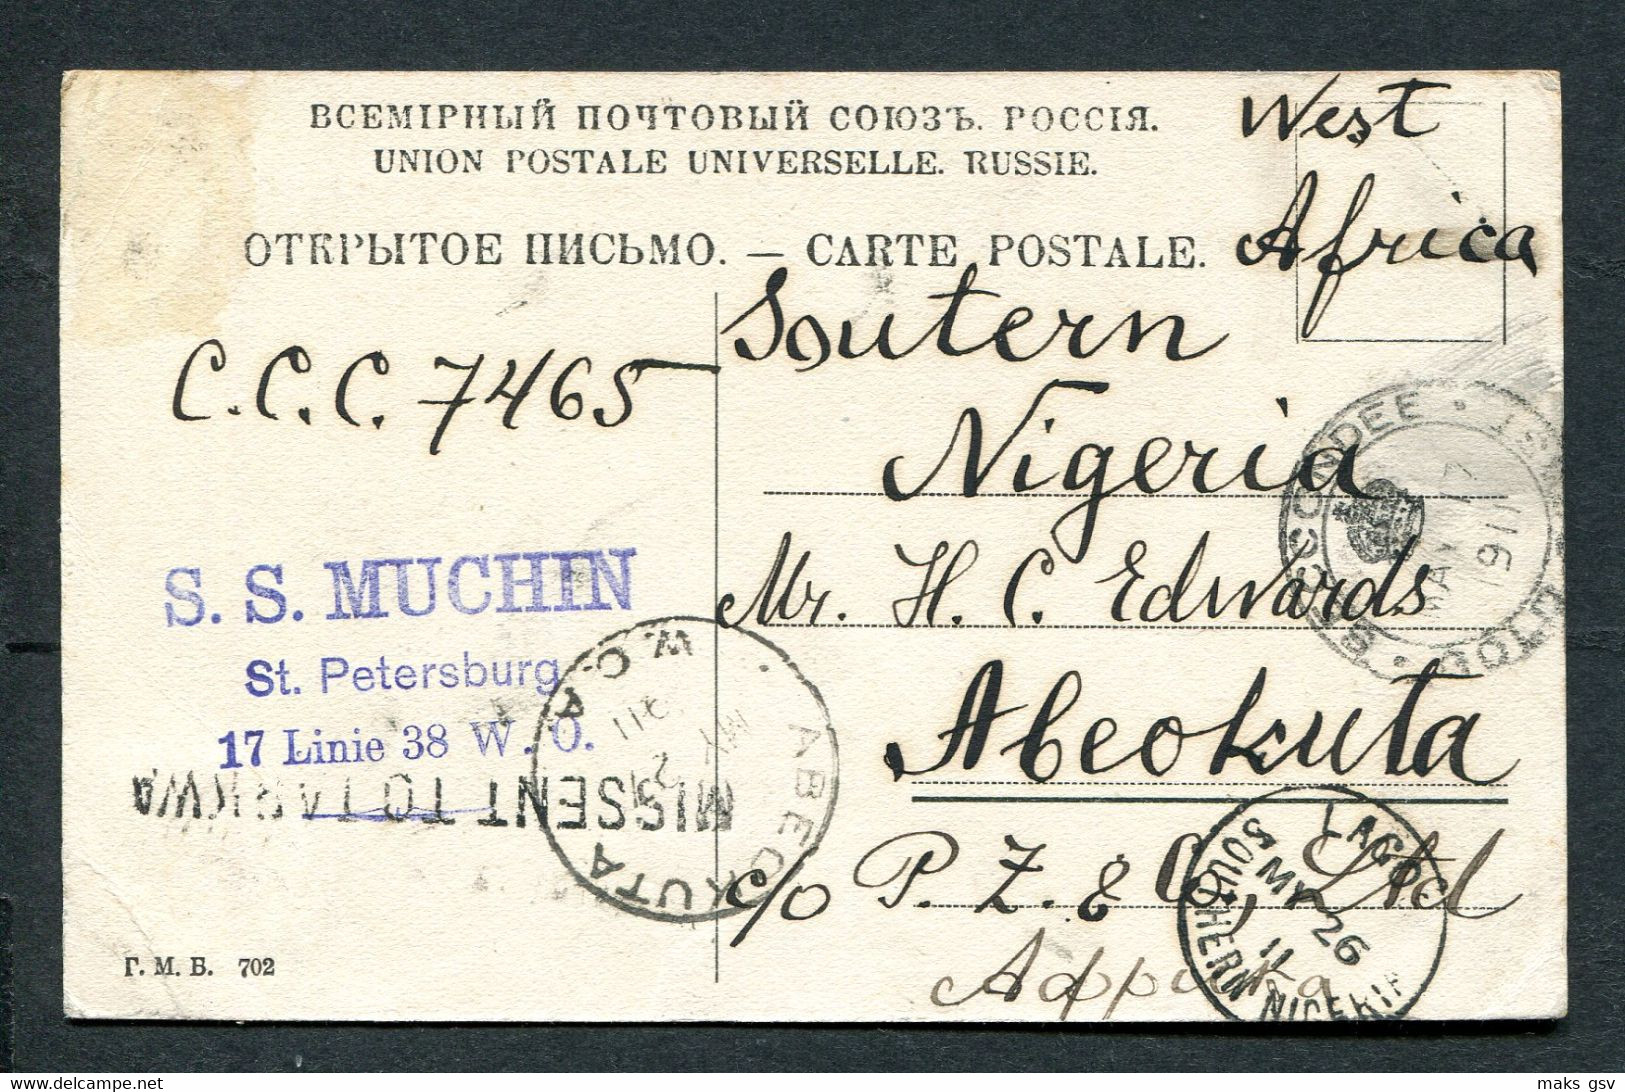 ВСЕМІРНЫЙ ПОЧТОВЫЙ СОЮЗЪ. РОССІЯ.
UNION POSTALE UNIVERSELLE. RUSSIE.
ОТКРЫТОЕ ПИСЬМО. — CARTE POSTALE.
West
Africa
C.C.C. 7465
Soutern
Nigeria
Mr. H. C. Edwards
Abeokuta
c/o P. Z. & Co, Ltd
Африка
S. S. MUCHIN
St. Petersburg
17 Linie 38 W. O.
MISSENT TO TARKWA
ABEOKUTA
W.C.A
MY 2 11
SUCCONDEE
MAY 17
1911
LAGOS
MY 26
11
SOUTHERN NIGERIA
Г. М. Б. 702
maks gsv